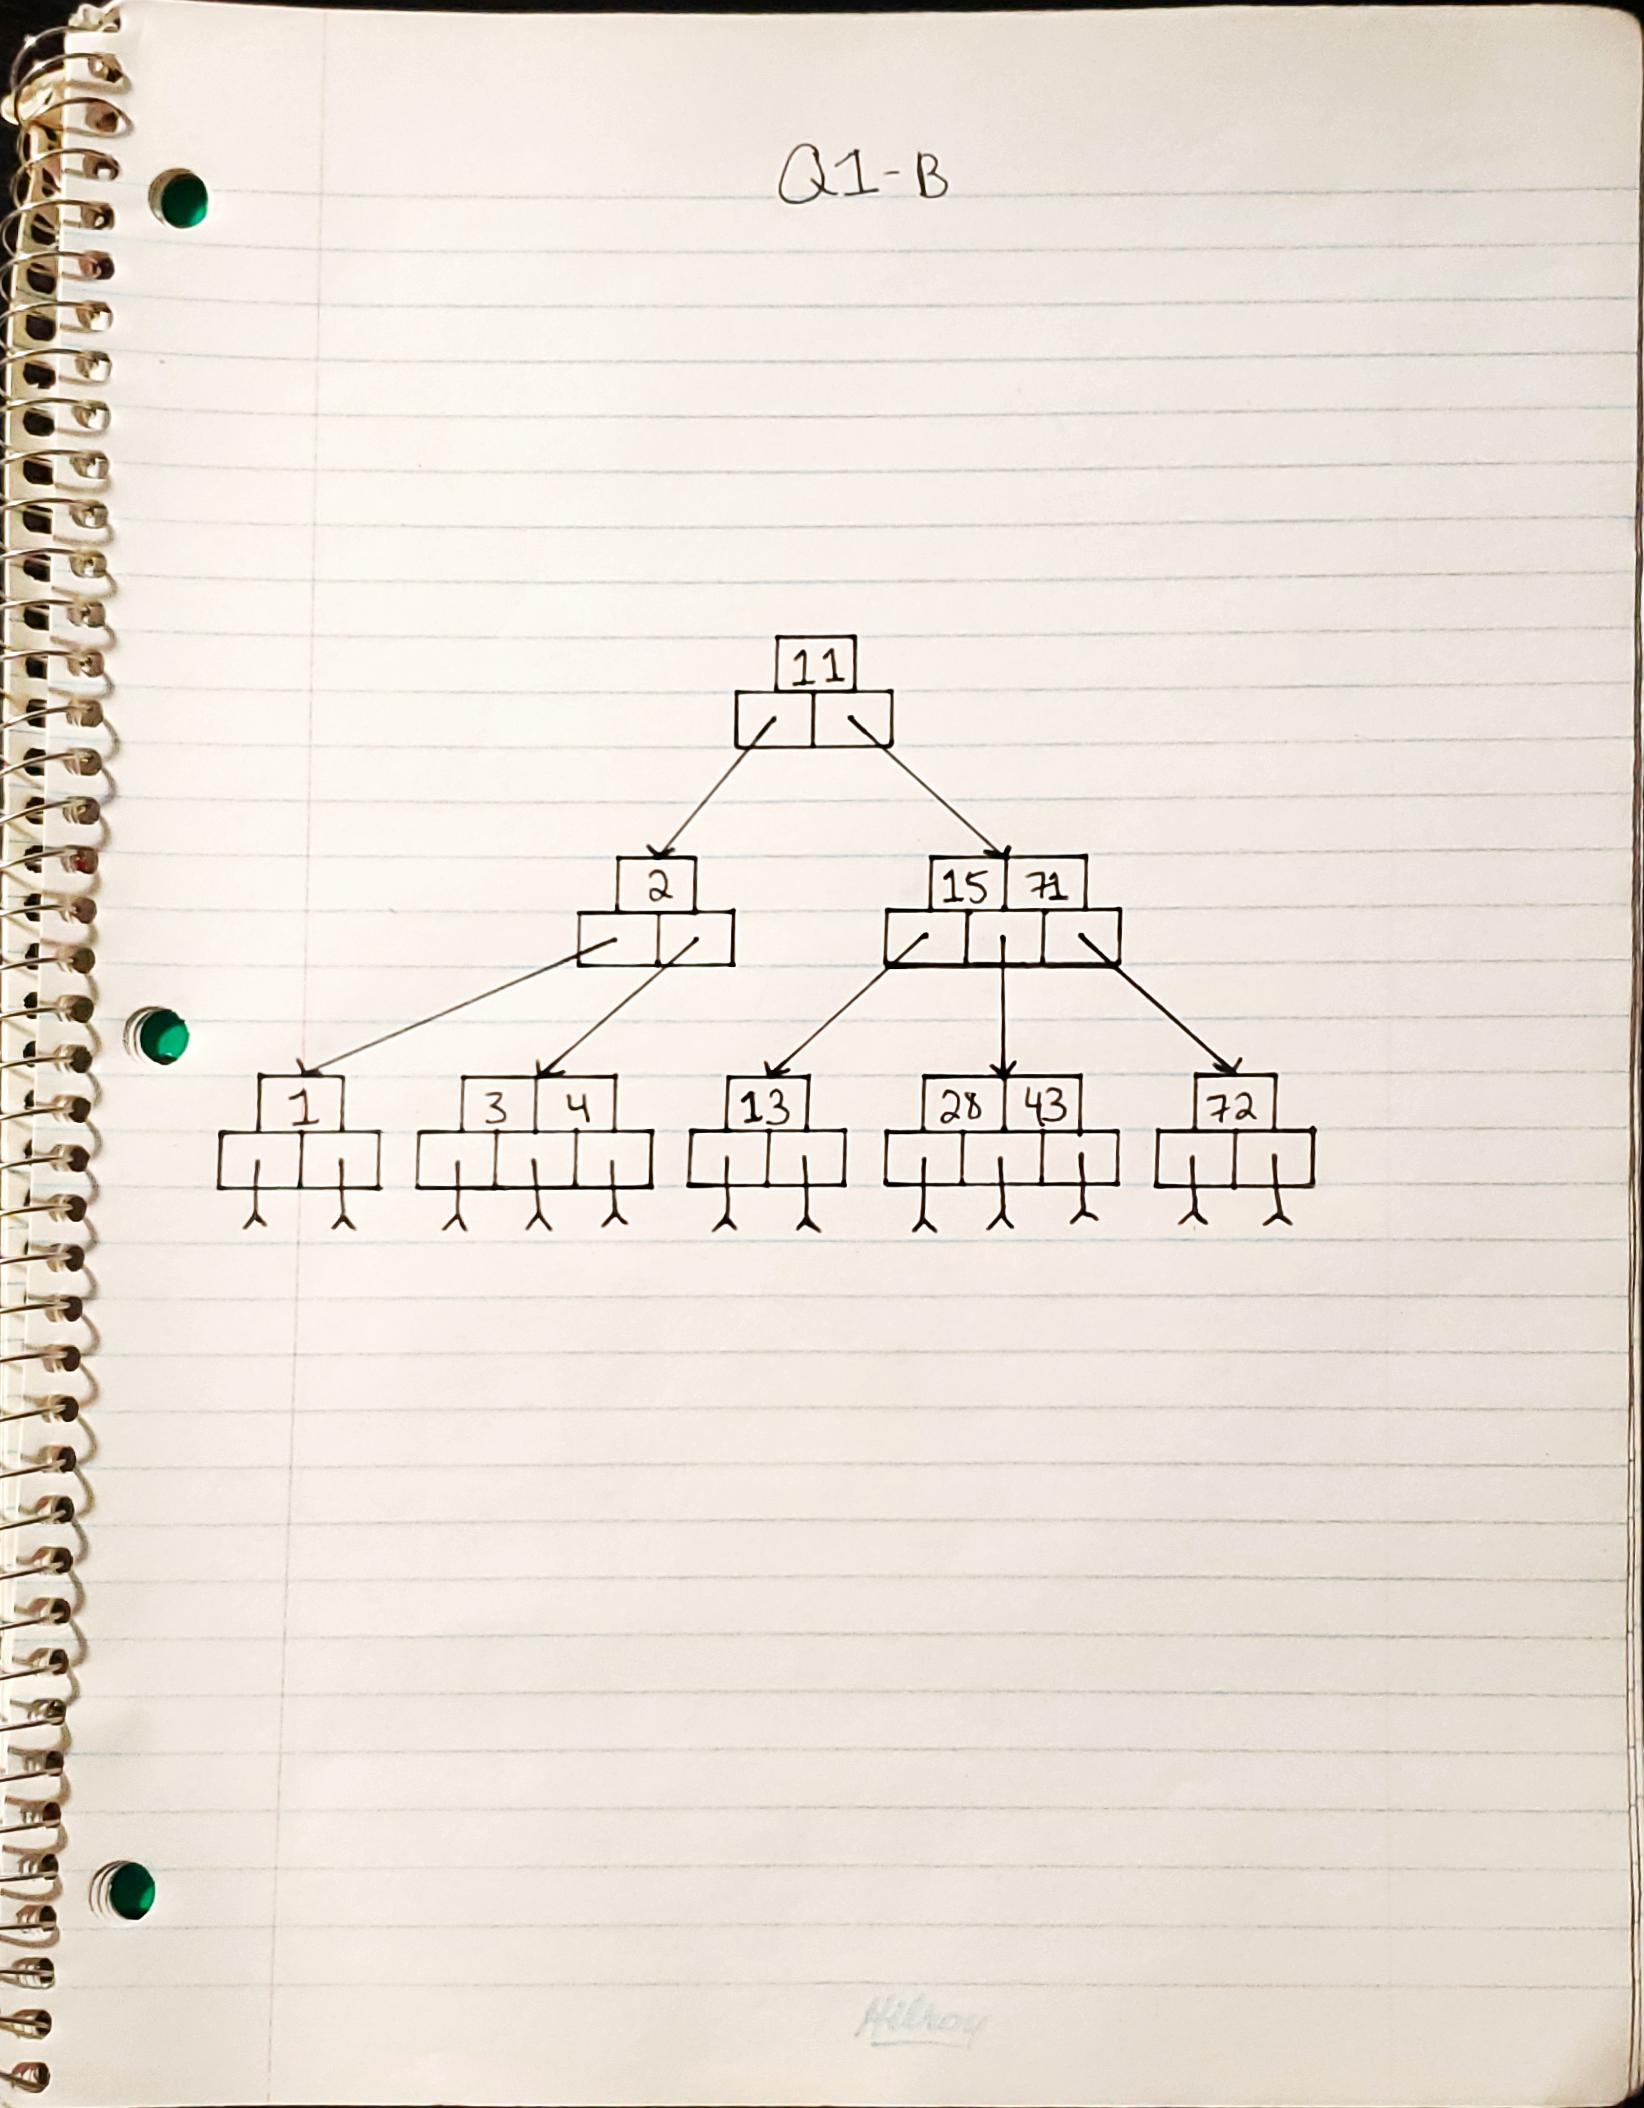 Q1-B
11
2 15 71
1 3 4 13 28 43 72
Hilroy